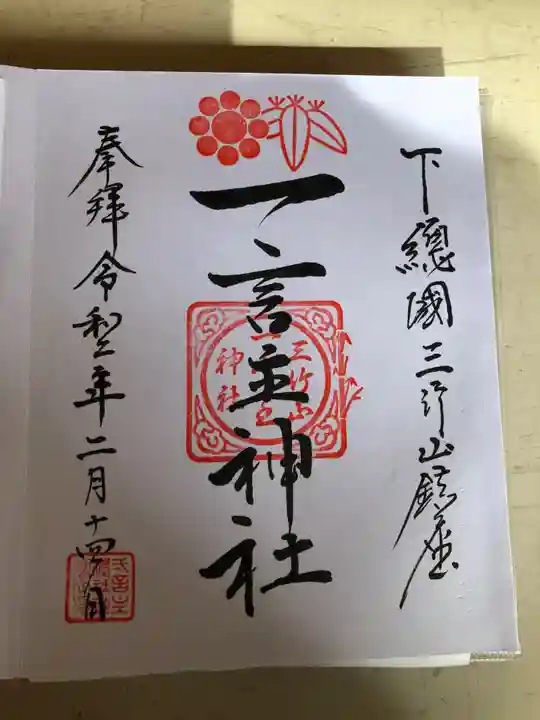 下總國三竹山鎮座
一言主神社
三竹山
神社
奉拜 令和二年二月十四日